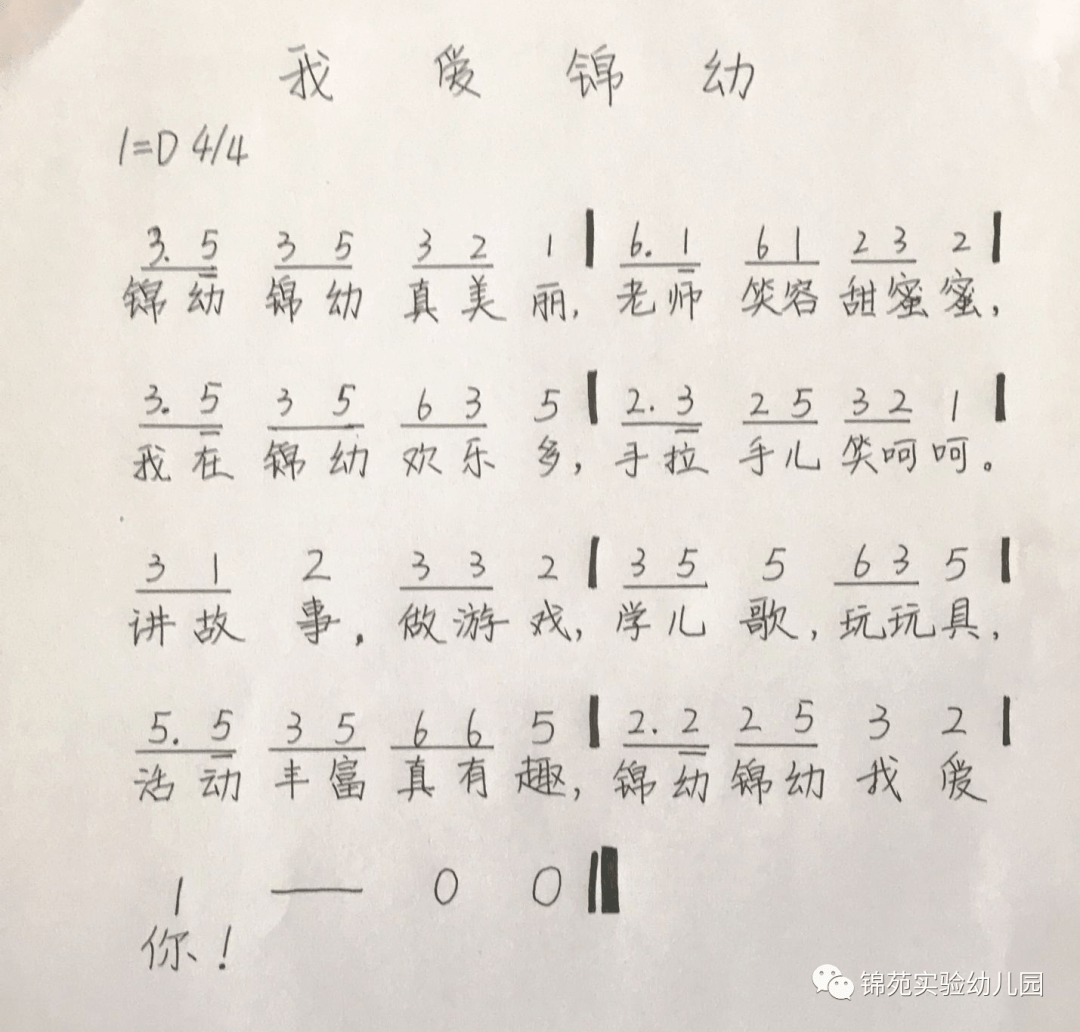 我 爱 锦 幼
1=D 4/4
3. 5 3 5 3 2 1 | 6. 1 6 1 2 3 2 |
锦 幼 锦 幼 真 美 丽, 老 师 笑容 甜蜜 蜜,
3. 5 3 5 6 3 5 | 2. 3 2 5 3 2 1 |
我 在 锦 幼 欢 乐 多, 手 拉 手儿 笑呵 呵。
3 1 2 3 3 2 | 3 5 5 6 3 5 |
讲 故 事, 做 游 戏, 学 儿 歌, 玩玩 具,
5. 5 3 5 6 6 5 | 2. 2 2 5 3 2 |
活 动 丰 富 真 有 趣, 锦 幼 锦 幼 我 爱
1 — 0 0 ‖
你!
锦苑实验幼儿园